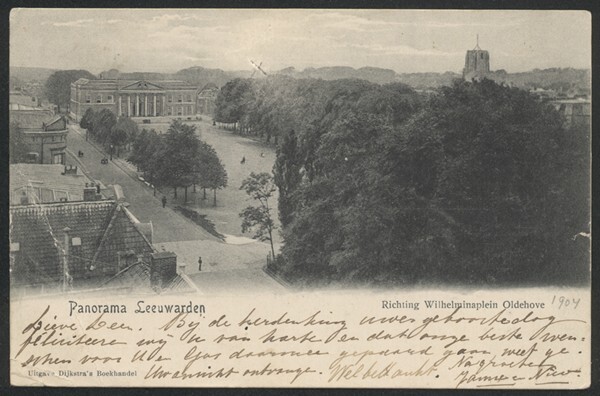 Panorama Leeuwarden
Richting Wilhelminaplein Oldehove 1904
Lieve Leen. Bij de herdenking uwer geboortedag
feliciteeren wij u van harte en dat onze beste wen-
schen voor U en daarmee gepaard gaan, weet ge.
Uw ansicht ontvangen. Wel bedankt. Na groete
Uitgave Dijkstra's Boekhandel